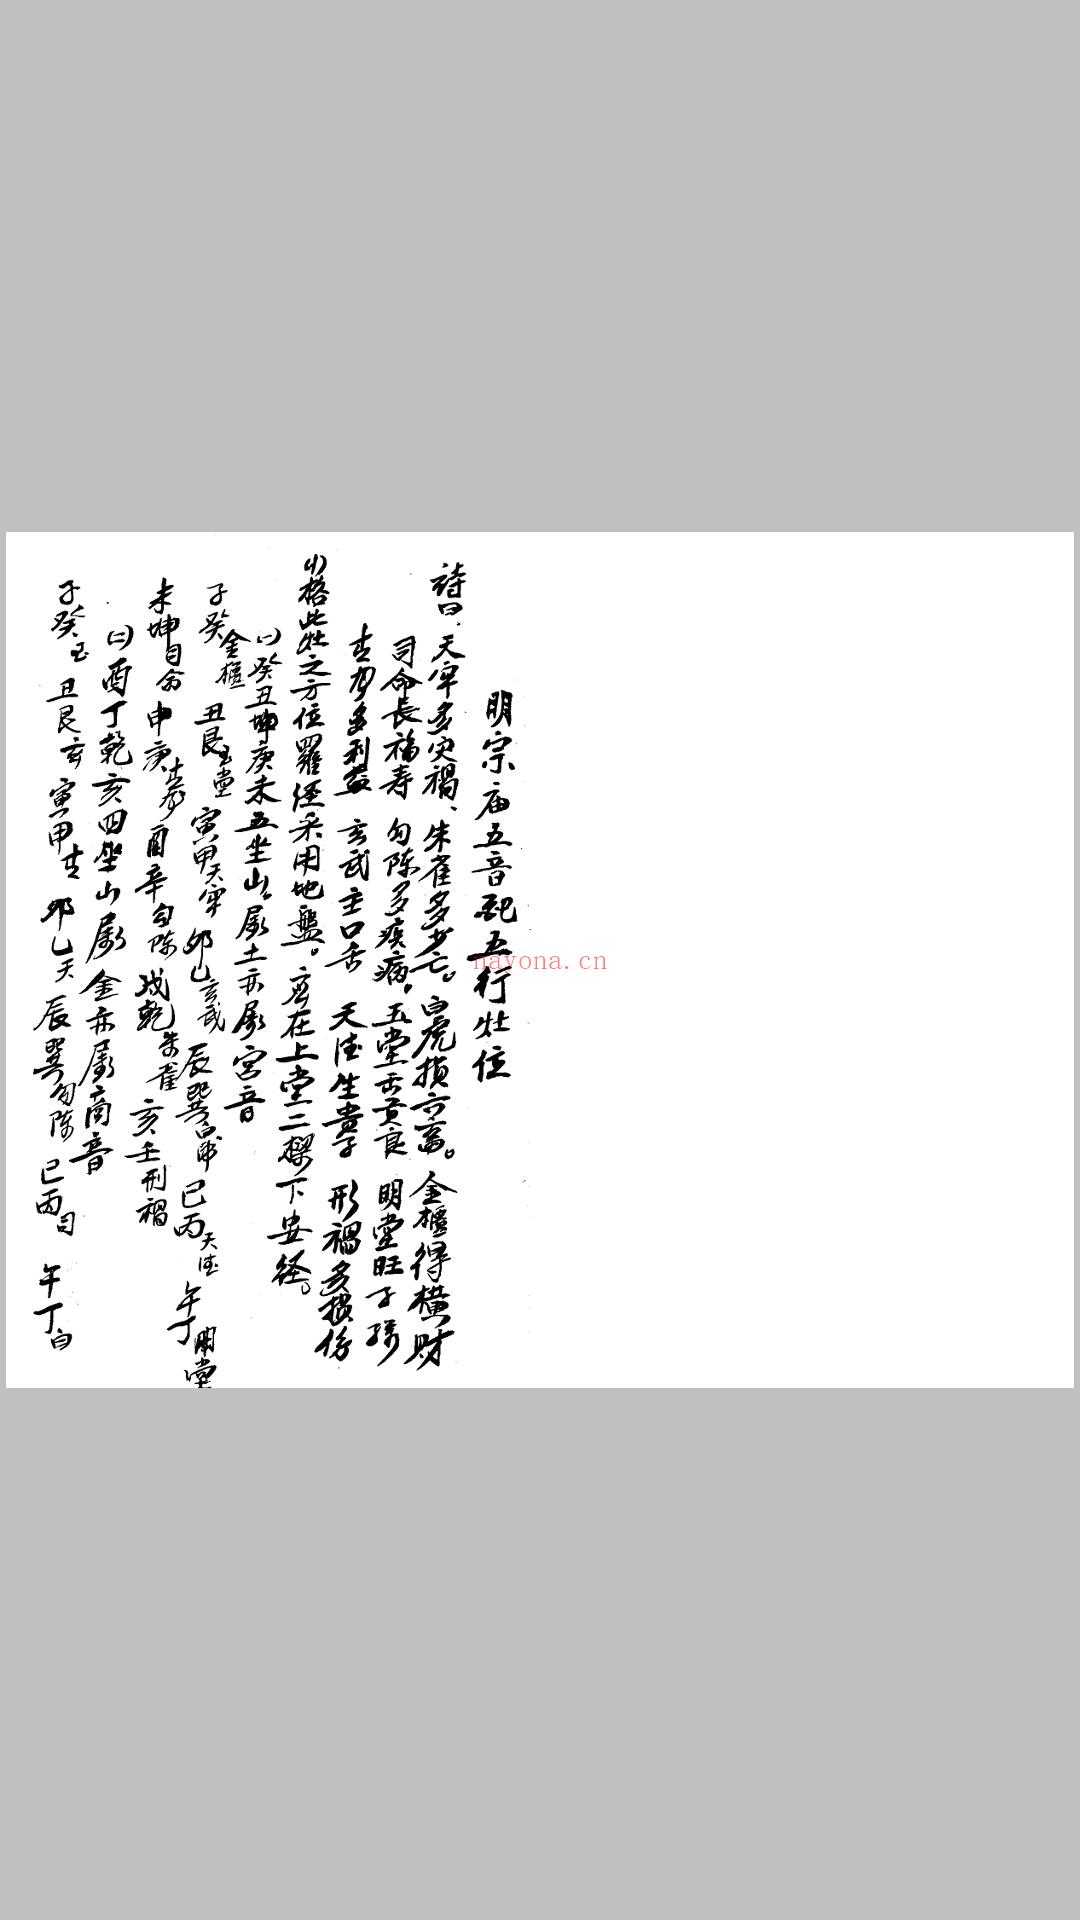 明宗庙五音配五行灶位
詩曰、天牢多灾禍、朱雀多少亡。白虎損六畜。金櫃得橫財
司命長福寿 勾陈多疾病。玉堂出贡良 明堂旺子孫
青多利益 玄武主口舌 天德生貴子 形禍多損
格此灶之方位羅经采用地盤。应在上堂二樑下安经。
㈠癸丑坤庚未五坐山属土亦属宮音
子癸金櫃 丑艮玉堂 寅甲天牢 卯乙玄武 辰巽白虎 巳丙天德 午丁明堂
未坤司命 申庚青 酉辛勾陈 戌乾朱雀 亥壬刑禍
㈡酉丁乾亥四坐山属金亦属商音
子癸玉 丑艮玄 寅甲青 卯乙天 辰巽勾陈 巳丙司 午丁白
nayona.cn